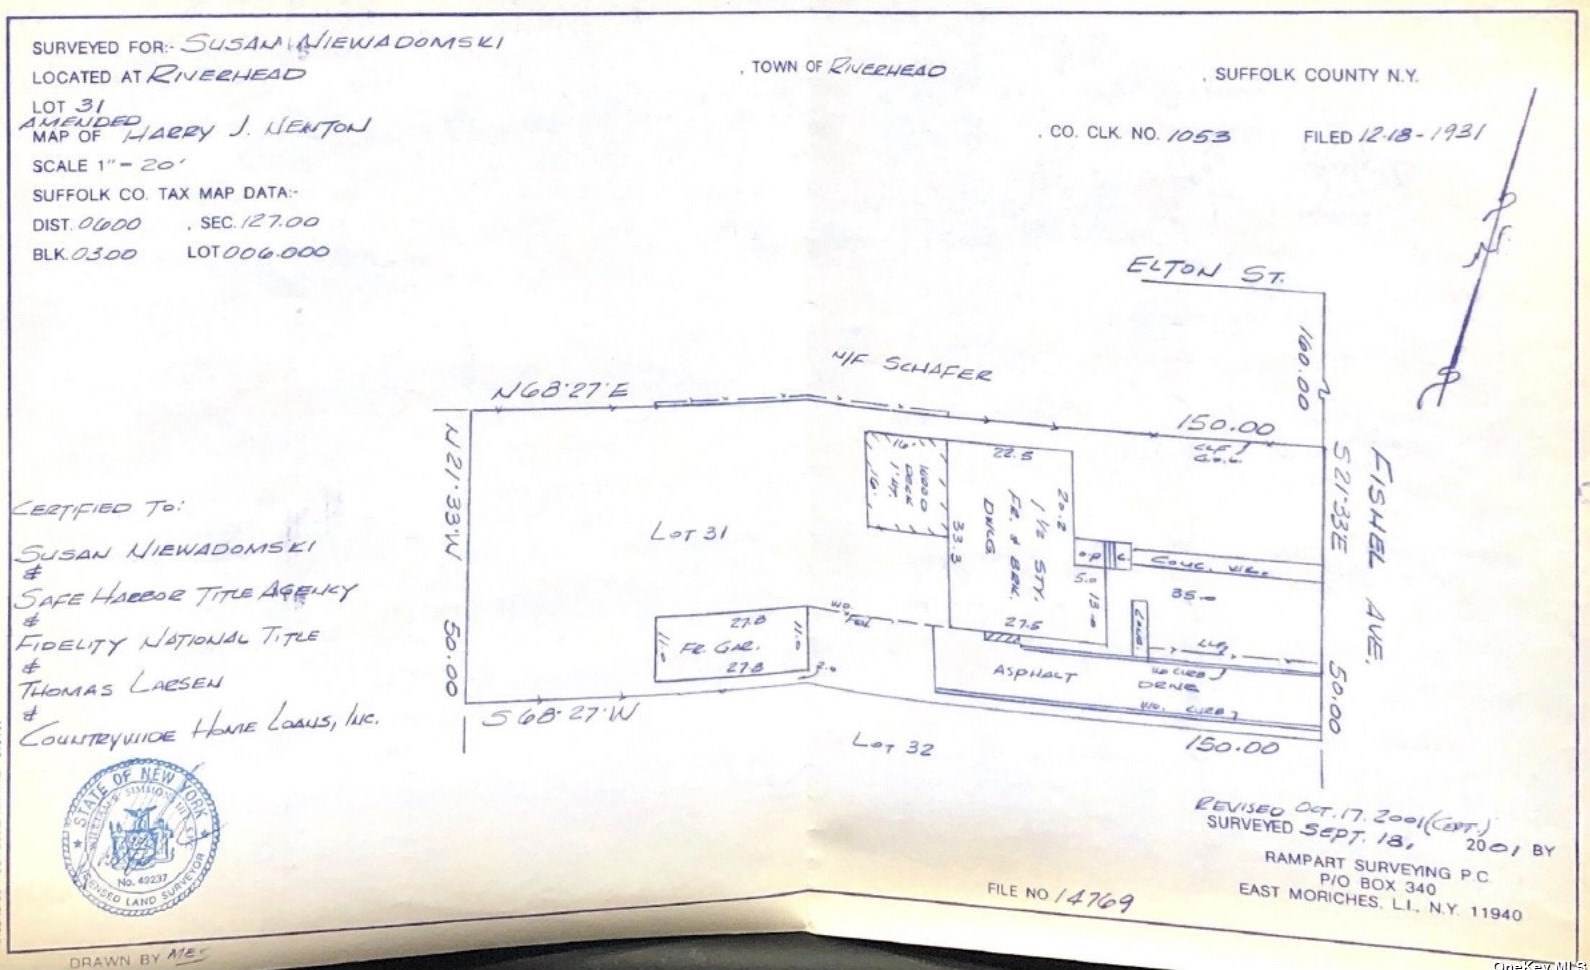 SURVEYED FOR:- SUSAN NIEWADOMSKI
LOCATED AT RIVERHEAD , TOWN OF RIVERHEAD , SUFFOLK COUNTY N.Y.
LOT 31
AMENDED
MAP OF HARRY J. NEWTON , CO. CLK. NO. 1053 FILED 12-18-1931
SCALE 1"= 20'
SUFFOLK CO. TAX MAP DATA:-
DIST. 0600 , SEC. 127.00
BLK. 03.00 LOT 006.000
ELTON ST.
160.00
N/F SCHAFER
N68°27'E
150.00
CLF
N21°33'W
50.00
S21°33'E
50.00
FISHEL AVE.
LOT 31
16.
WOOD
DECK
1' HT.
16.
22.5
20.2
1 1/2 STY.
FR. & BRK.
DWLG
33.3
27.5
O.P.
5.0
13.0
CONC. WK.
35.0
CONC.
WD.
FEN.
27.8
11.0
FR. GAR.
11.0
27.8
2.0
CLF
WD CURB
ASPHALT
DRNE
WD. CURB
S68°27'W
150.00
LOT 32
CERTIFIED TO:
SUSAN NIEWADOMSKI
&
SAFE HARBOR TITLE AGENCY
&
FIDELITY NATIONAL TITLE
&
THOMAS LARSEN
&
COUNTRYWIDE HOME LOANS, INC.
STATE OF NEW YORK
No. 49237
LICENSED LAND SURVEYOR
REVISED OCT. 17. 2001 (CERT.)
SURVEYED SEPT. 18, 2001 BY
RAMPART SURVEYING P.C.
P/O BOX 340
EAST MORICHES, L.I., N.Y. 11940
FILE NO 14769
DRAWN BY
OneKey MLS